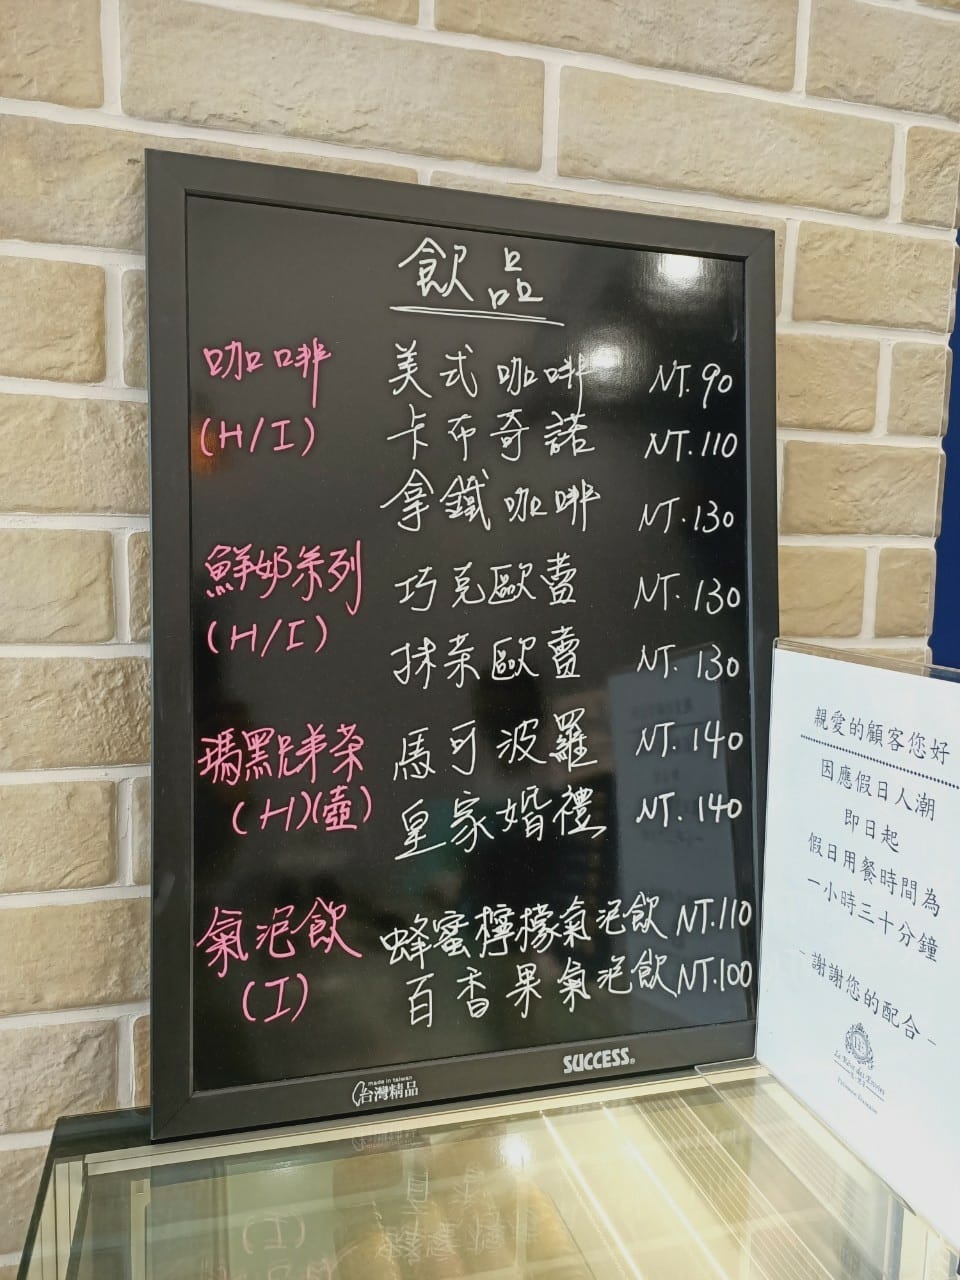 飲品
咖啡
(H/I)
美式咖啡 NT.90
卡布奇諾 NT.110
拿鐵咖啡 NT.130
鮮奶系列
(H/I)
巧克歐蕾 NT.130
抹茶歐蕾 NT.130
瑪黑兄弟茶
(H)(壺)
馬可波羅 NT.140
皇家婚禮 NT.140
氣泡飲
(I)
蜂蜜檸檬氣泡飲 NT.110
百香果氣泡飲 NT.100
made in taiwan
台灣精品
SUCCESS®
親愛的顧客您好
因應假日人潮
即日起
假日用餐時間為
一小時三十分鐘
- 謝謝您的配合 -